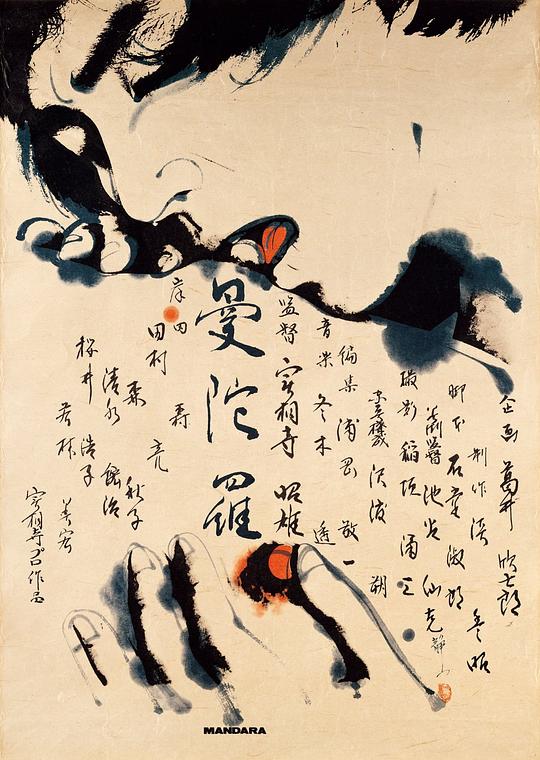 企画 葛井 欣士郎
制作 淡 豊昭
脚本 石堂 淑朗
美術監督 池谷 仙克
撮影 稲垣 涌三
編集 浦岡 敬一
音楽 冬木 透
監督 実相寺 昭雄
曼陀羅
岸田
田村 亮
森 秋子
清水 紘治
桜井 浩子
若林 美宏
実相寺プロ作品
静山
MANDARA